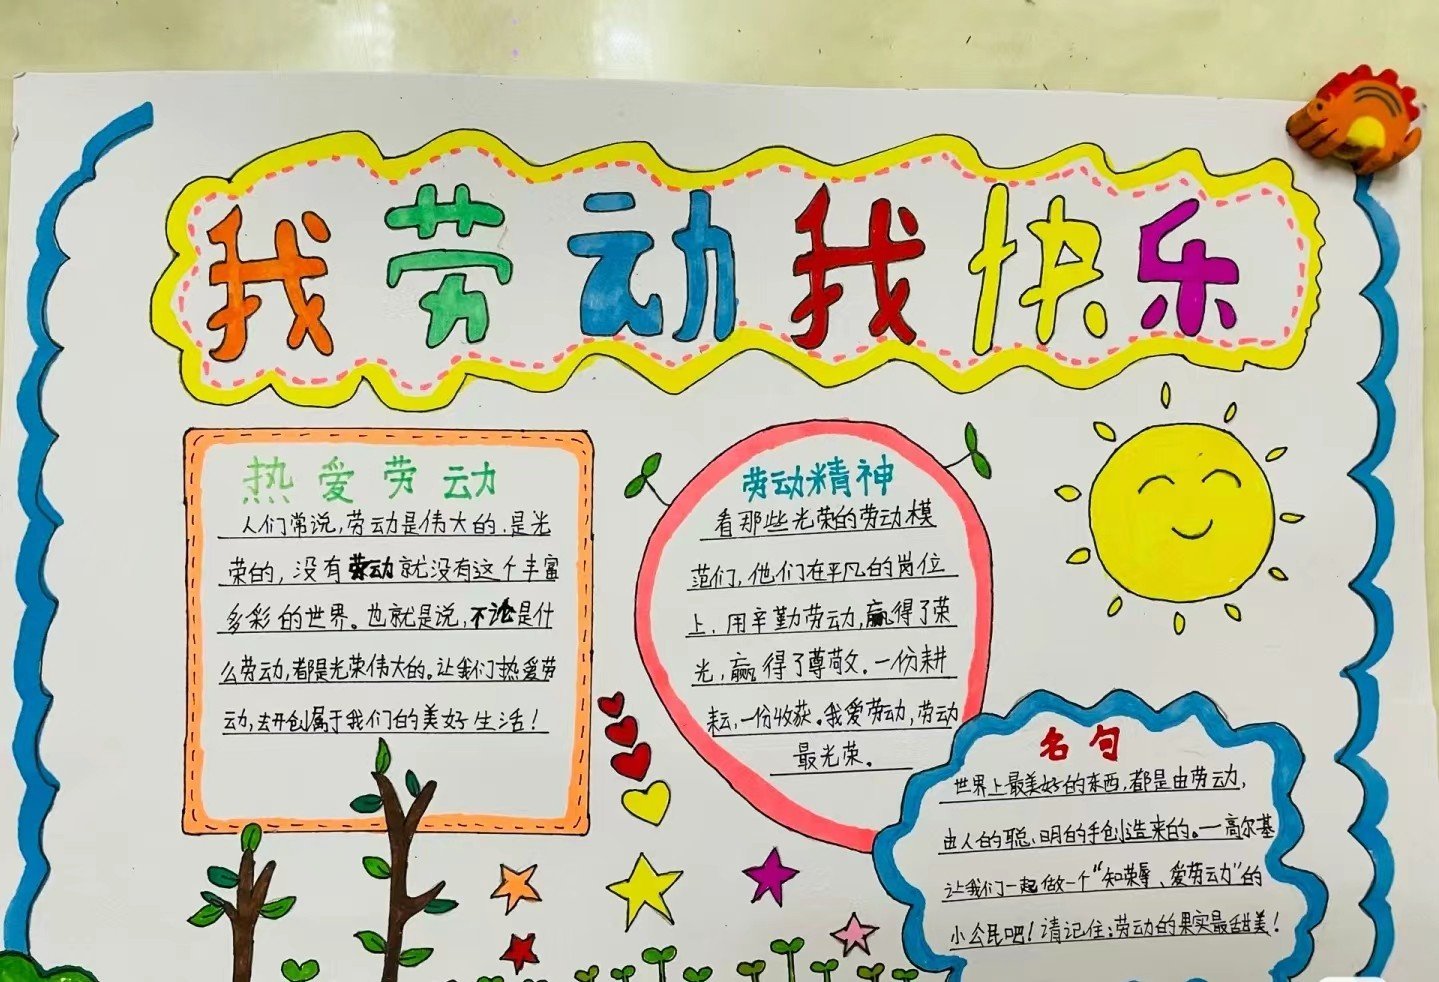 我劳动我快乐
热爱劳动
人们常说,劳动是伟大的,是光
荣的,没有劳动就没有这个丰富
多彩的世界。也就是说,不论是什
么劳动,都是光荣伟大的。让我们热爱劳
动,去开创属于我们的美好生活!
劳动精神
看那些光荣的劳动模
范们,他们在平凡的岗位
上,用辛勤劳动,赢得了荣
光,赢得了尊敬。一份耕
耘,一份收获。我爱劳动,劳动
最光荣。
名句
世界上最美好的东西,都是由劳动,
由人的聪明的手创造来的。一高尔基
让我们一起做一个“知荣辱、爱劳动”的
小公民吧!请记住:劳动的果实最甜美!